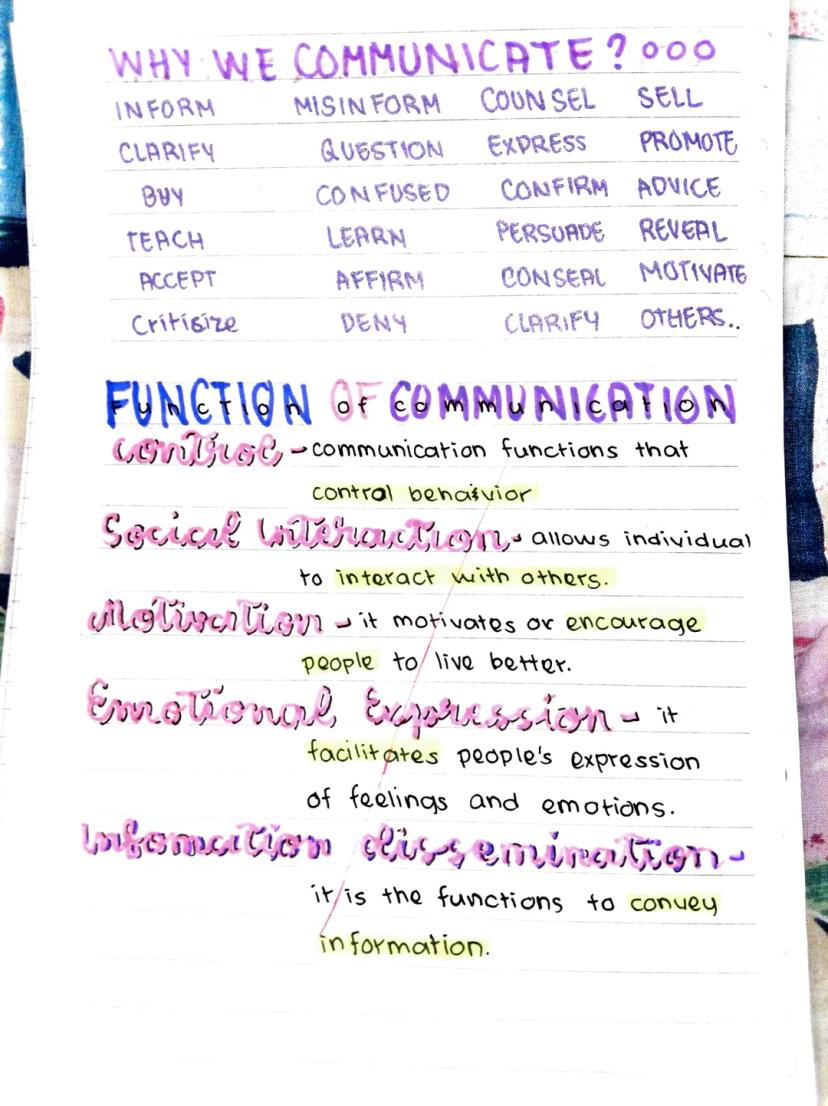 WHY WE COMMUNICATE? ooo
INFORM MISINFORM COUNSEL SELL
CLARIFY QUESTION EXPRESS PROMOTE
BUY CONFUSED CONFIRM ADVICE
TEACH LEARN PERSUADE REVEAL
ACCEPT AFFIRM CONSEAL MOTIVATE
Critisize DENY CLARIFY OTHERS..
FUNCTION OF COMMUNICATION
control - communication functions that
control behaivior
Social Interaction - allows individual
to interact with others.
Motivation - it motivates or encourage
people to live better.
Emotional Expression - it
facilitates people's expression
of feelings and emotions.
Infomation dissemination -
it is the functions to convey
information.